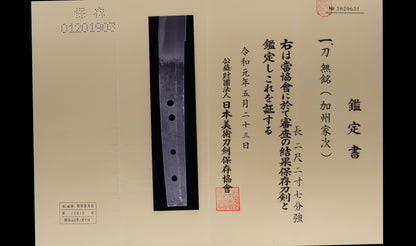 保存
01201903
№ 3020651
鑑定書
一、刀 無銘(加州家次)
長 二尺二寸七分強
右は當協會に於て審査の結果保存刀剣と
鑑定しこれを証する
令和元年五月二十三日
公益財團法人 日本美術刀剣保存協會